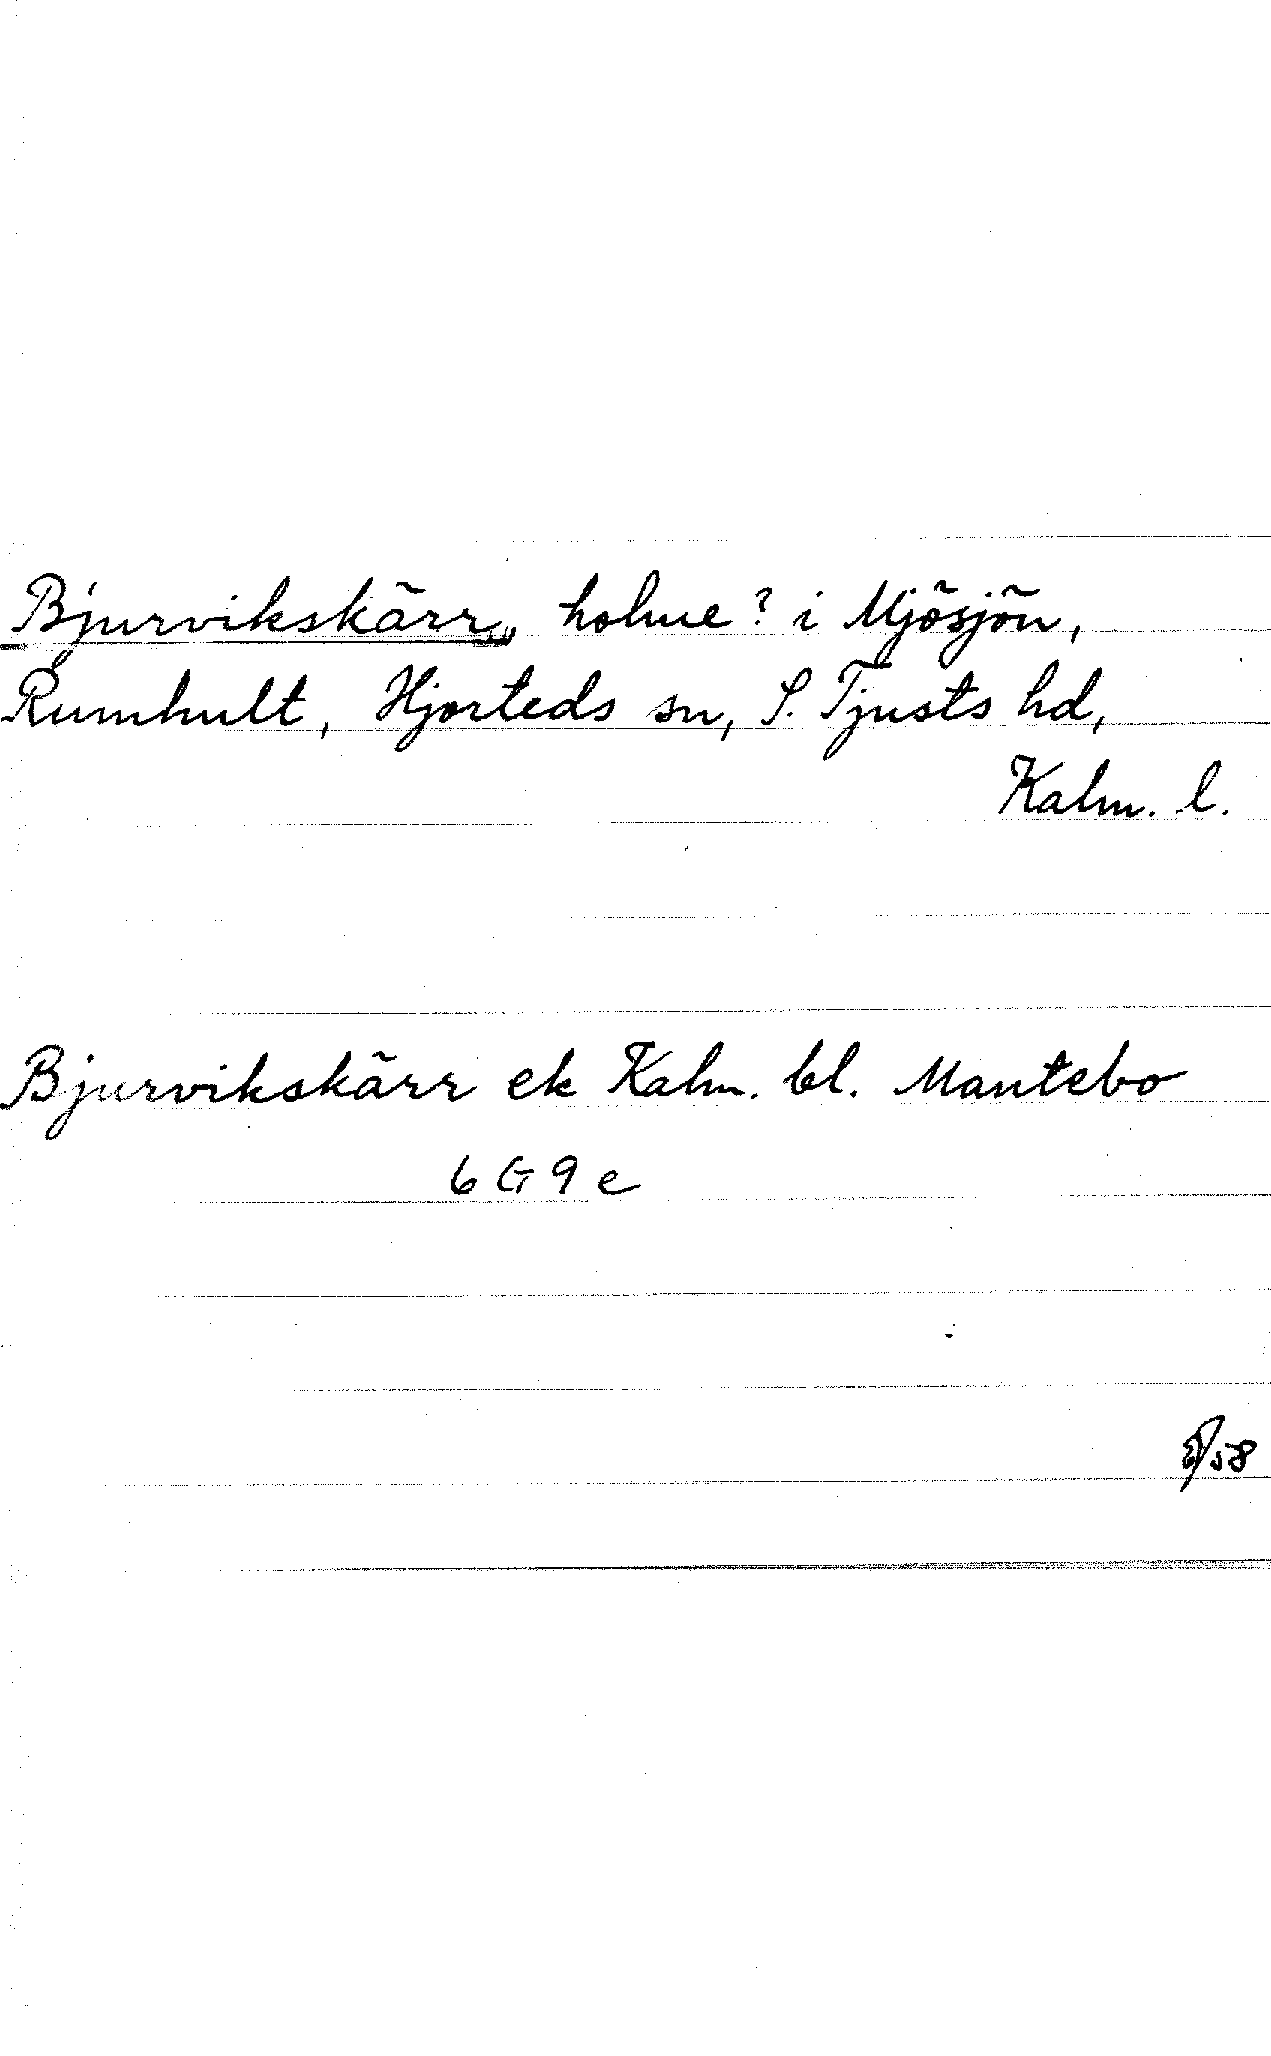 Bjurvikskärr, holme? i Mjösjön,
Rumhult, Hjorteds sn, S. Tjusts hd,
Kalm. l.
Bjurvikskärr ek Kalm. bl. Mantebo
6 G 9 e